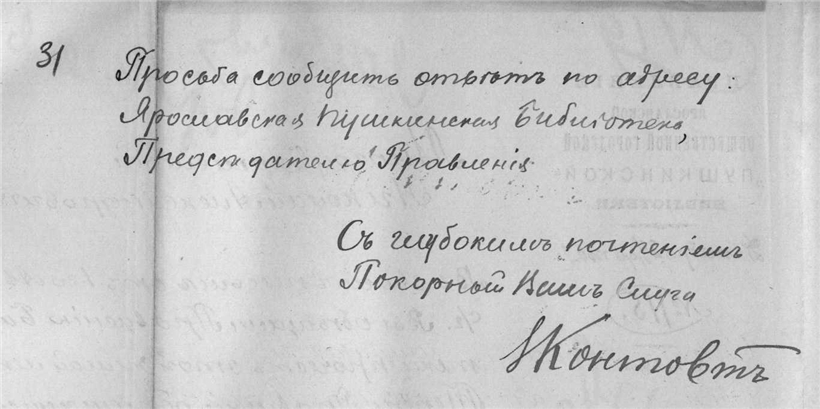 31
Просьба сообщить отвѣтъ по адресу:
Ярославская Пушкинская Библіотека,
Предсѣдателю Правленія
Съ глубокимъ почтеніемъ
Покорный Вашъ Слуга